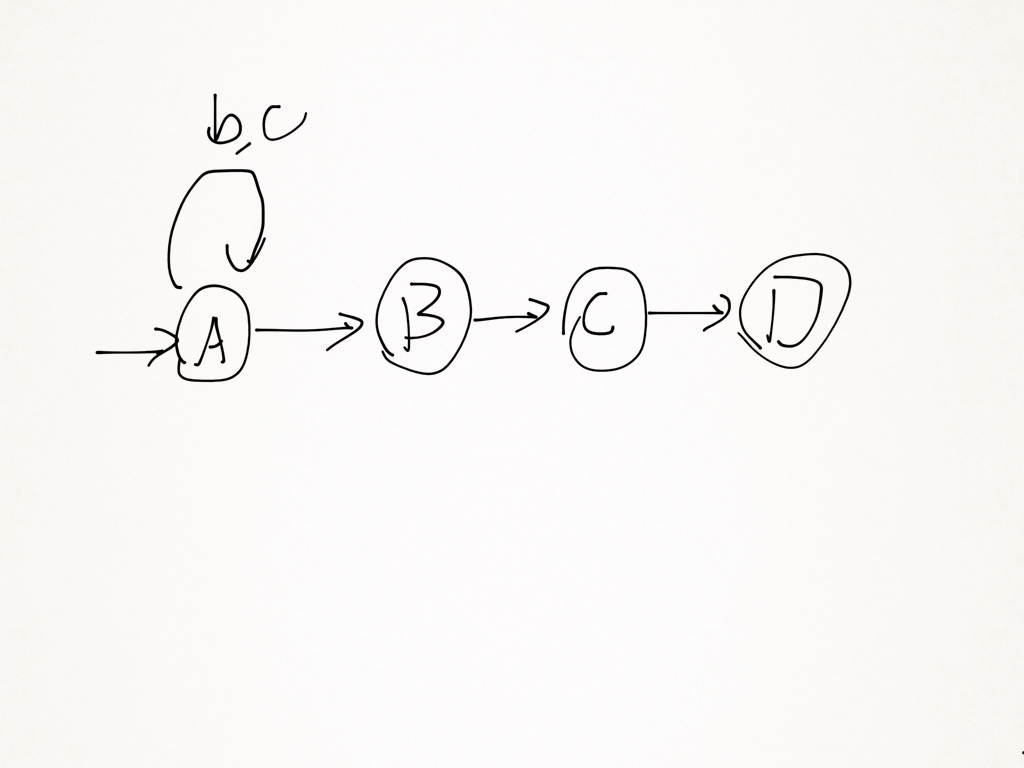 b, c
A B C D